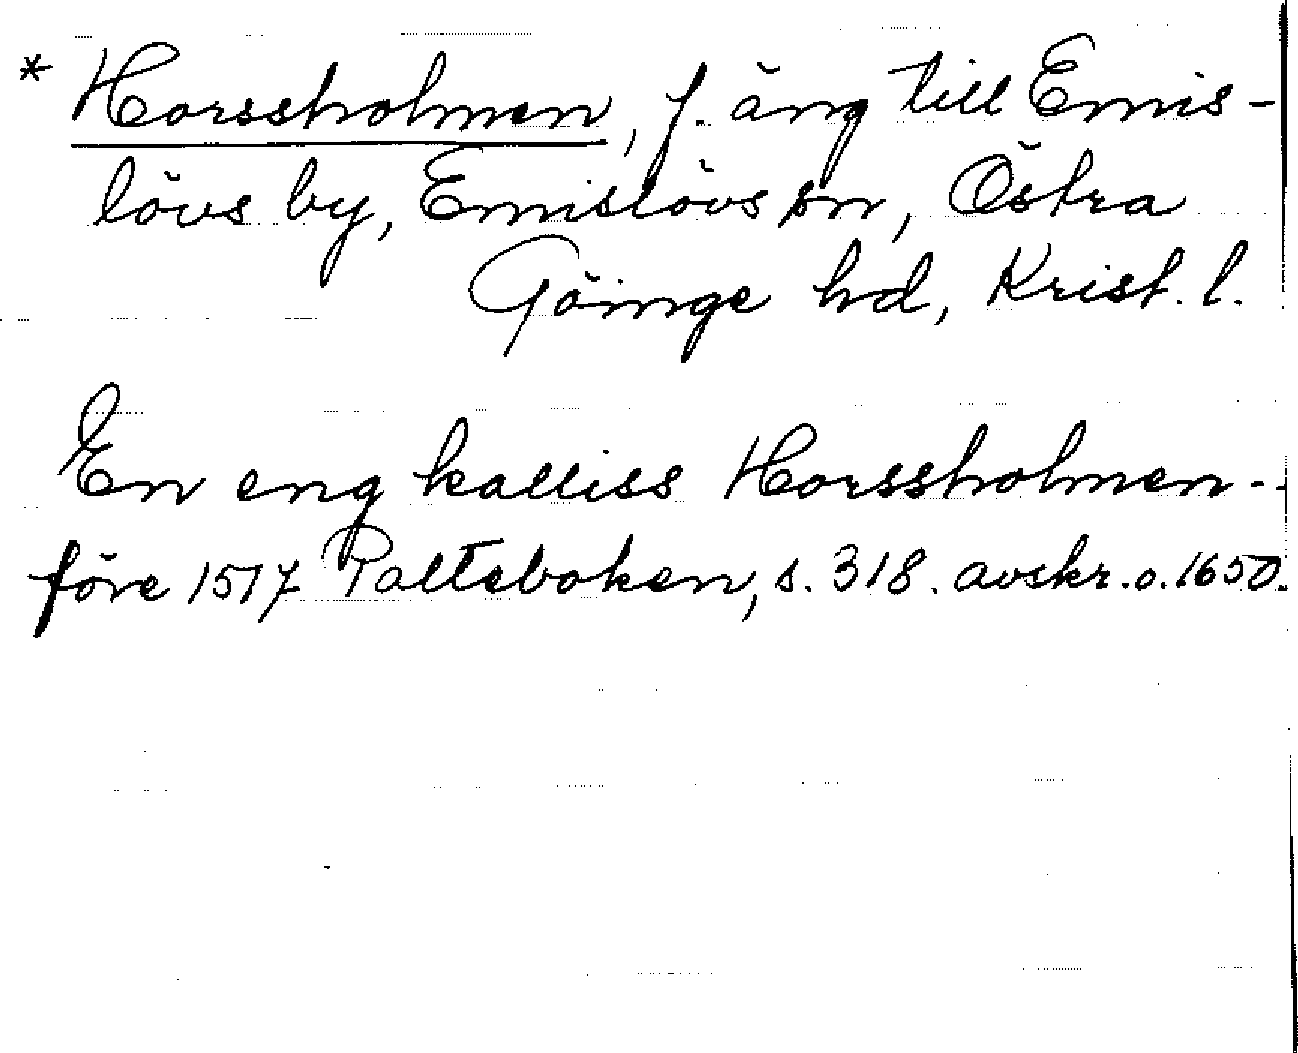 * Horssholmen, f. äng till Emis-
lövs by, Emislövs sn, Östra
Göinge hd, Krist. l.
En eng kalliss Horssholmen -
före 1517 Palteboken, s. 318. avskr. o. 1650.